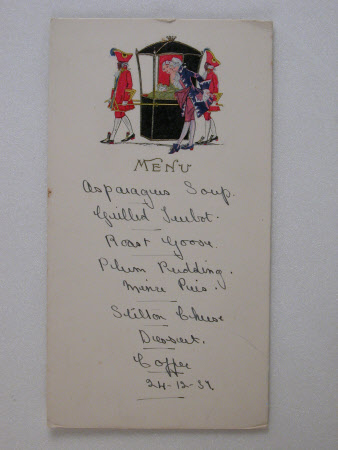 MENU
Asparagus Soup.
Grilled Turbot.
Roast Goose.
Plum Pudding.
Mince Pies.
Stilton Cheese
Dessert.
Coffee
24-12-37